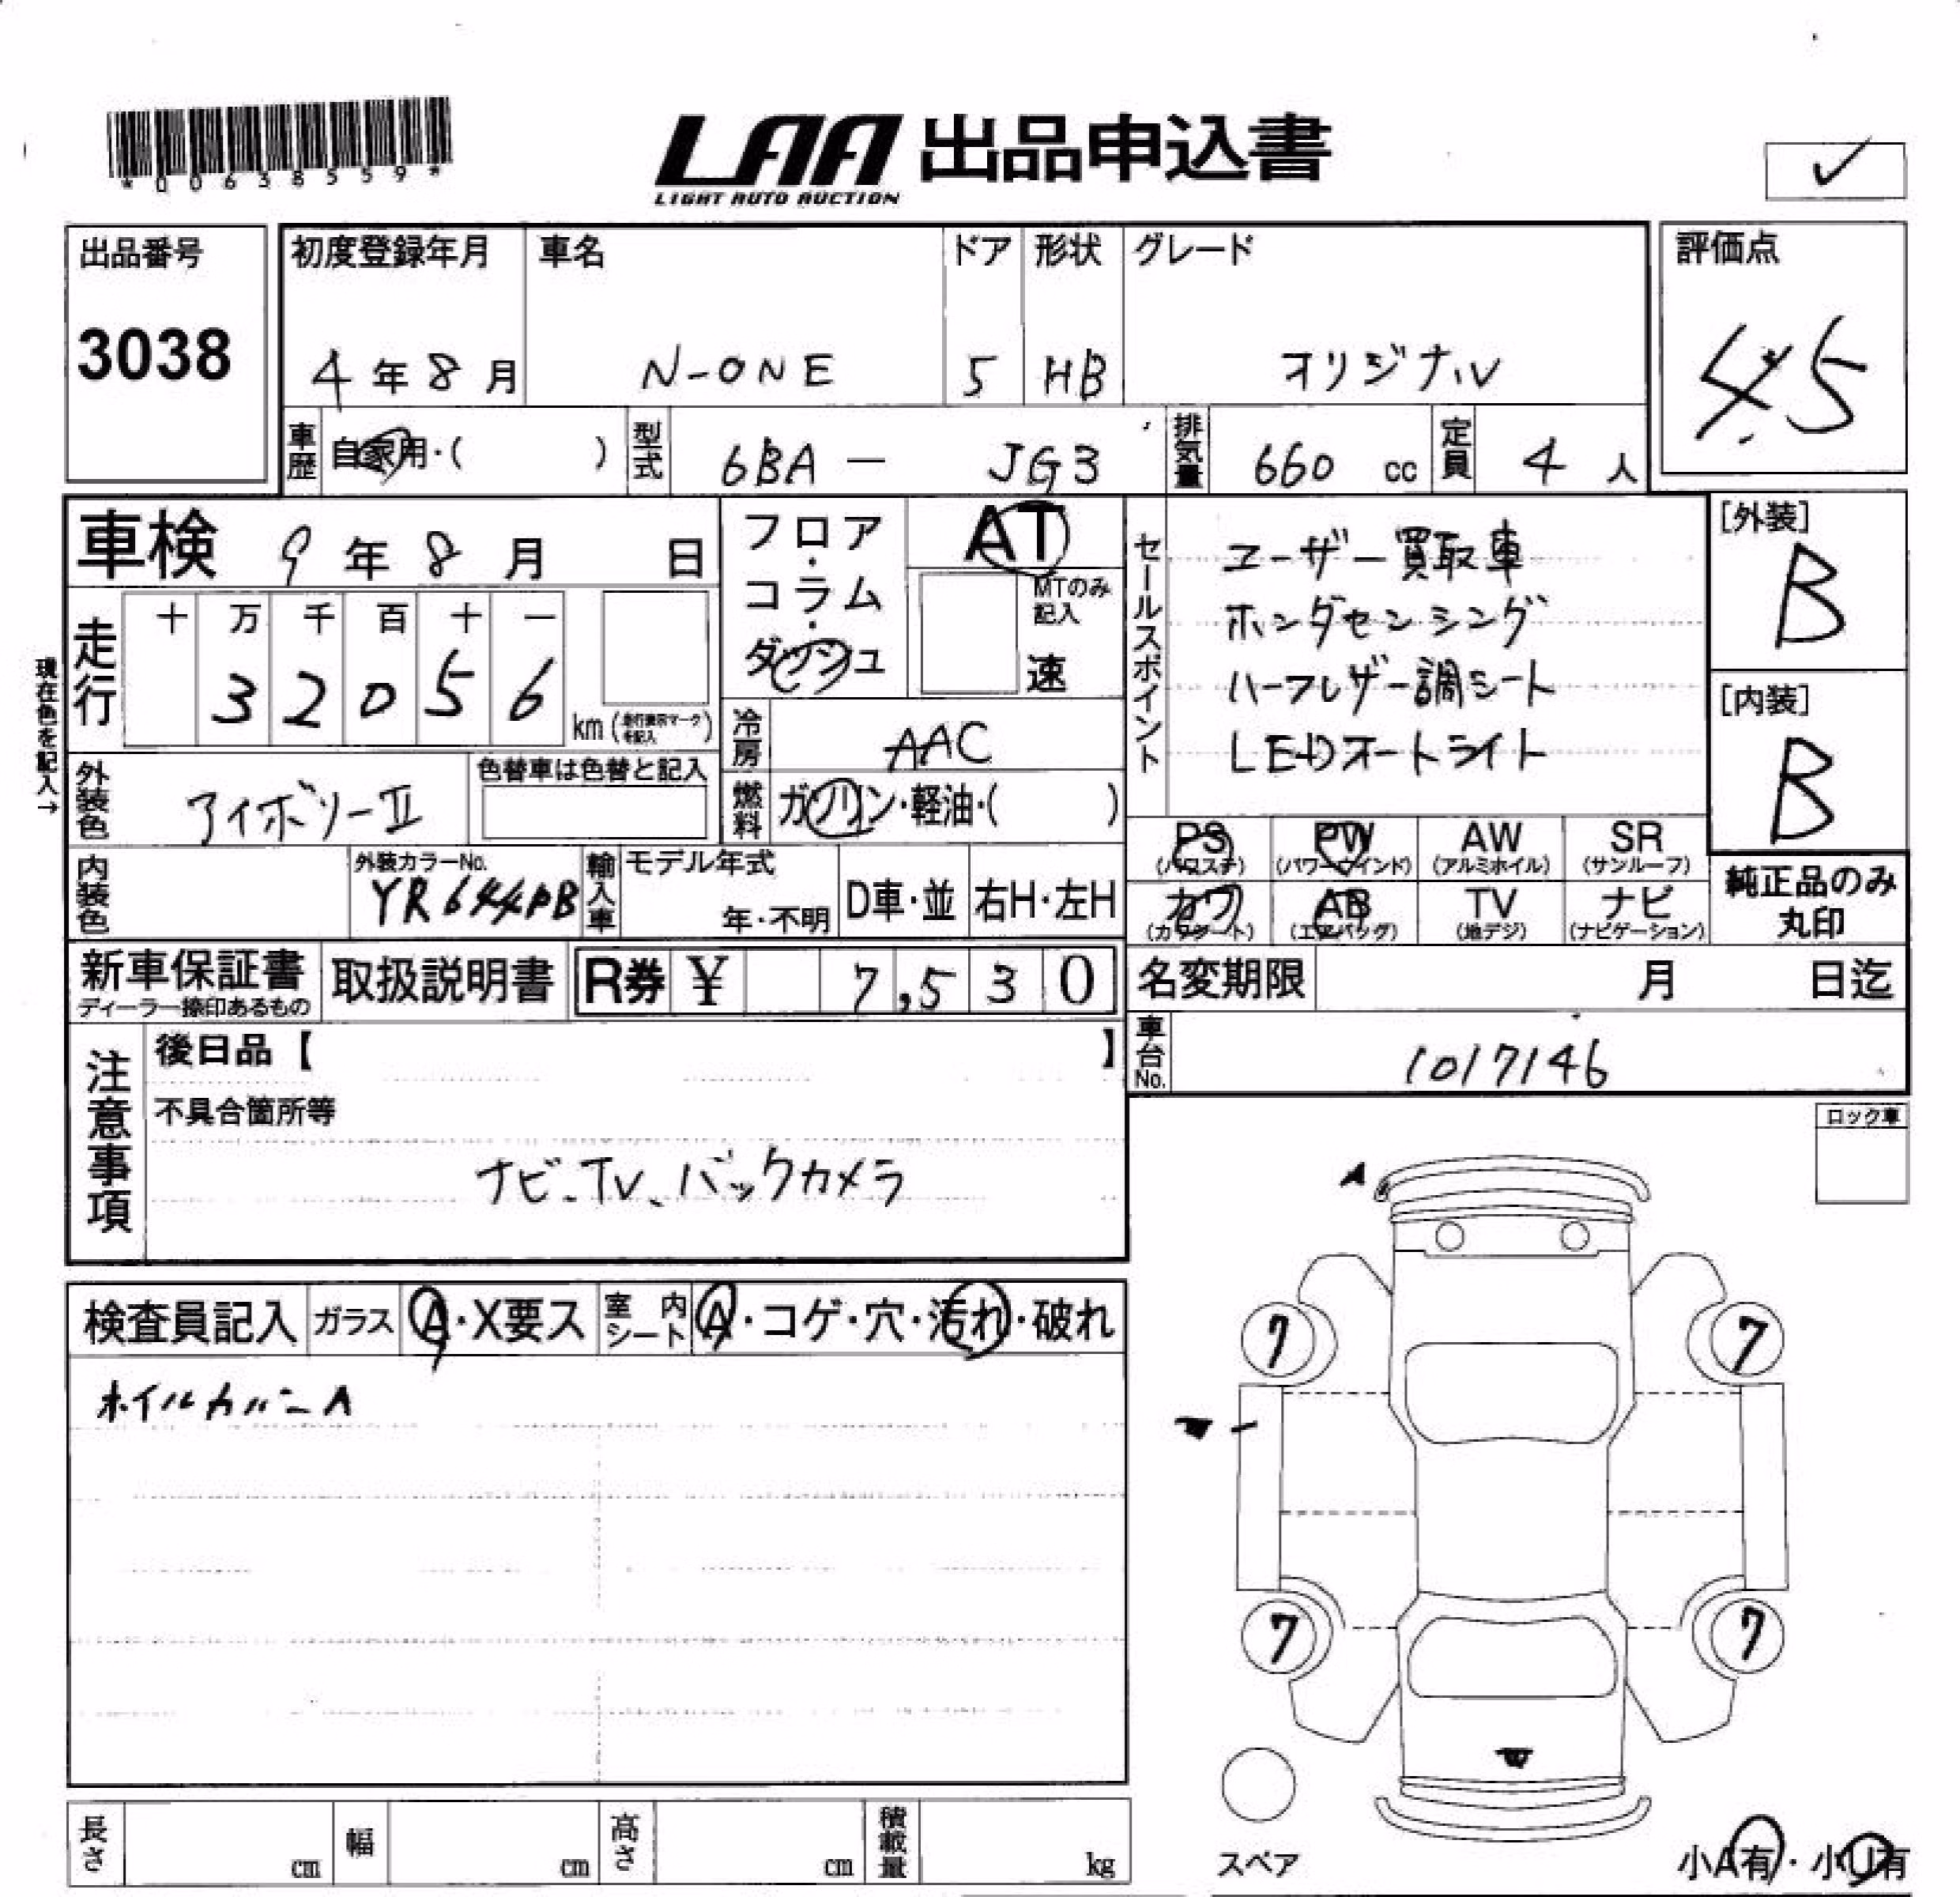 *00638559*
LAA 出品申込書
LIGHT AUTO AUCTION
出品番号
3038
初度登録年月
4年8月
車名
N-ONE
ドア
5
形状
HB
グレード
オリジナル
評価点
4.5
車歴
自家用・( )
型式
6BA - JG3
排気量
660 cc
定員
4 人
車検 9年8月 日
現在色を記入→
走行
十 万 千 百 十 一
3 2 0 5 6
km
フロア・コラム・ダッシュ
AT
MTのみ記入
速
冷房
AAC
燃料
ガソリン・軽油・( )
セールスポイント
ユーザー買取車
ホンダセンシング
ハーフレザー調シート
LEDオートライト
[外装]
B
[内装]
B
外装色
アイボリーⅡ
色替車は色替と記入
内装色
外装カラーNo.
YR644PB
輸入車
モデル年式
年・不明
D車・並
右H・左H
PS
(パワステ)
PW
(パワーウインド)
AW
(アルミホイル)
SR
(サンルーフ)
カワ
(カワシート)
AB
(エアバッグ)
TV
(地デジ)
ナビ
(ナビゲーション)
純正品のみ
丸印
新車保証書
ディーラー捺印あるもの
取扱説明書
R券 ¥ 7,530
名変期限 月 日迄
車台No.
1017146
注意事項
後日品【 】
不具合箇所等
ナビ、TV、バックカメラ
ロック車
A
検査員記入
ガラス
A・X要ス
室内シート
A・コゲ・穴・汚れ・破れ
ホイルカバーA
7
7
7
7
スペア
小A有・小U有
長さ cm
幅 cm
高さ cm
積載量 kg